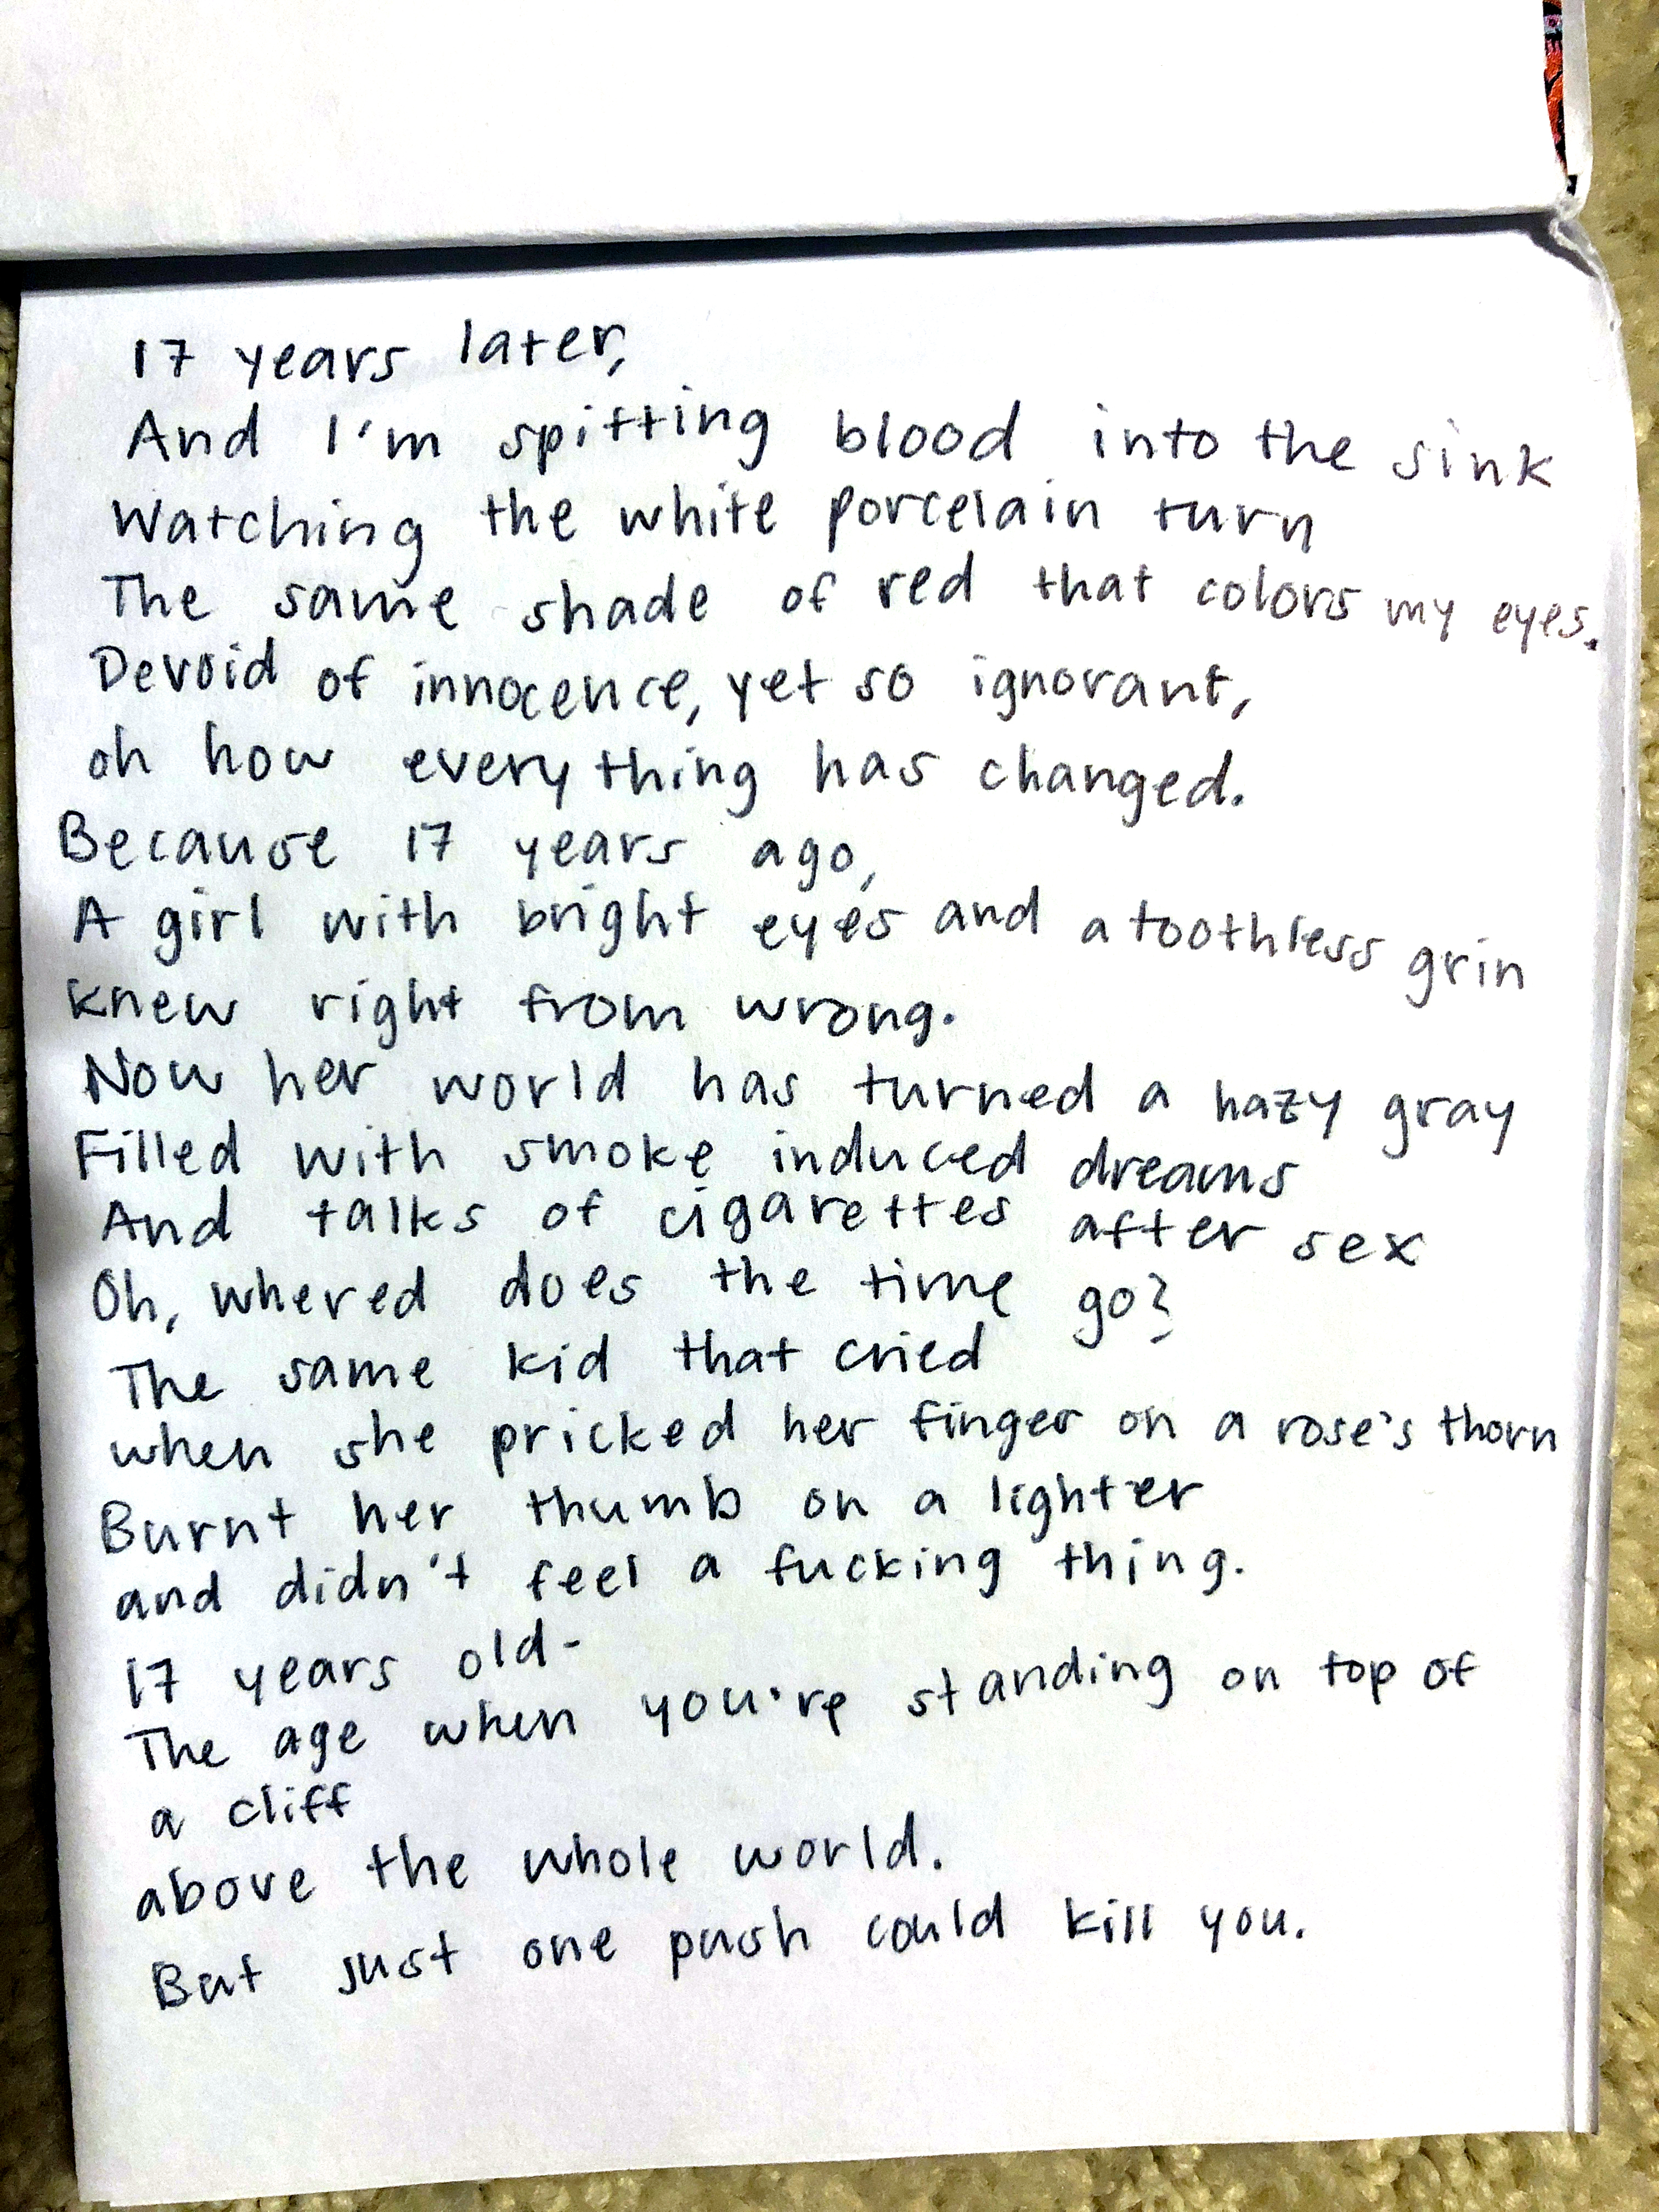 17 years later,
And I'm spitting blood into the sink
Watching the white porcelain turn
The same shade of red that colors my eyes.
Devoid of innocence, yet so ignorant,
oh how everything has changed.
Because 17 years ago,
A girl with bright eyes and a toothless grin
knew right from wrong.
Now her world has turned a hazy gray
Filled with smoke induced dreams
And talks of cigarettes after sex
Oh, whered does the time go?
The same kid that cried
when she pricked her finger on a rose's thorn
Burnt her thumb on a lighter
and didn't feel a fucking thing.
17 years old-
The age when you're standing on top of
a cliff
above the whole world.
But just one push could kill you.